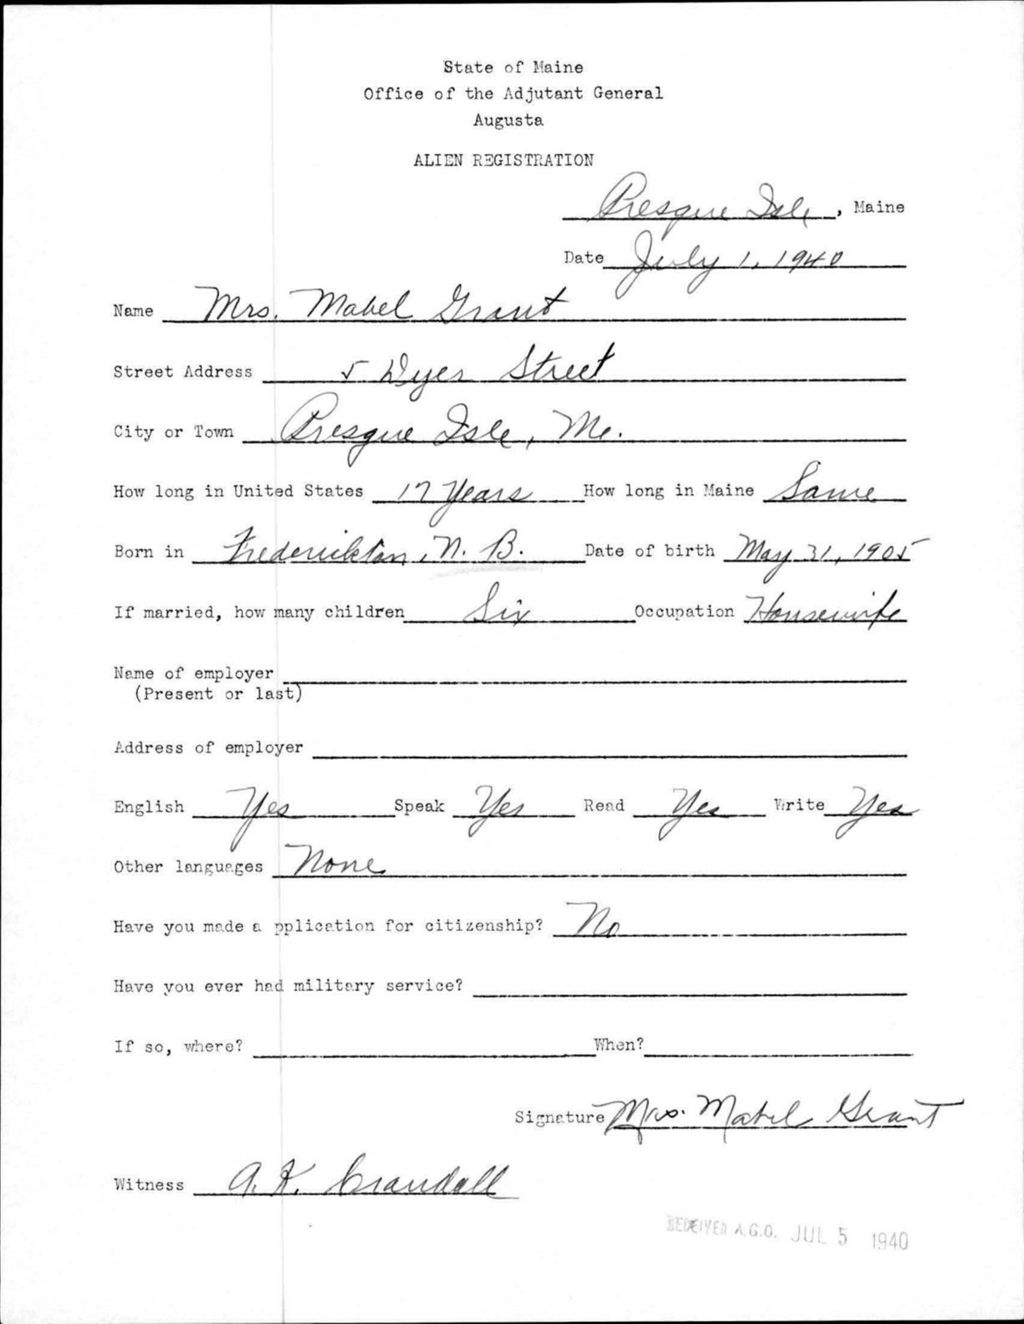 State of Maine
Office of the Adjutant General
Augusta
ALIEN REGISTRATION
Presque Isle, Maine
Date July 1, 1940
Name Mrs. Mabel Grant
Street Address 5 Dyer Street
City or Town Presque Isle, Me.
How long in United States 17 Years How long in Maine Same
Born in Fredericktan, N. B. Date of birth May 31, 1905
If married, how many children Six Occupation Housewife
Name of employer
(Present or last)
Address of employer
English Yes Speak Yes Read Yes Write Yes
Other languages None
Have you made a pplication for citizenship? No
Have you ever had military service?
If so, where? When?
Signature Mrs. Mabel Grant
Witness A. K. Crandall
RECEIVED A.G.O. JUL 5 1940